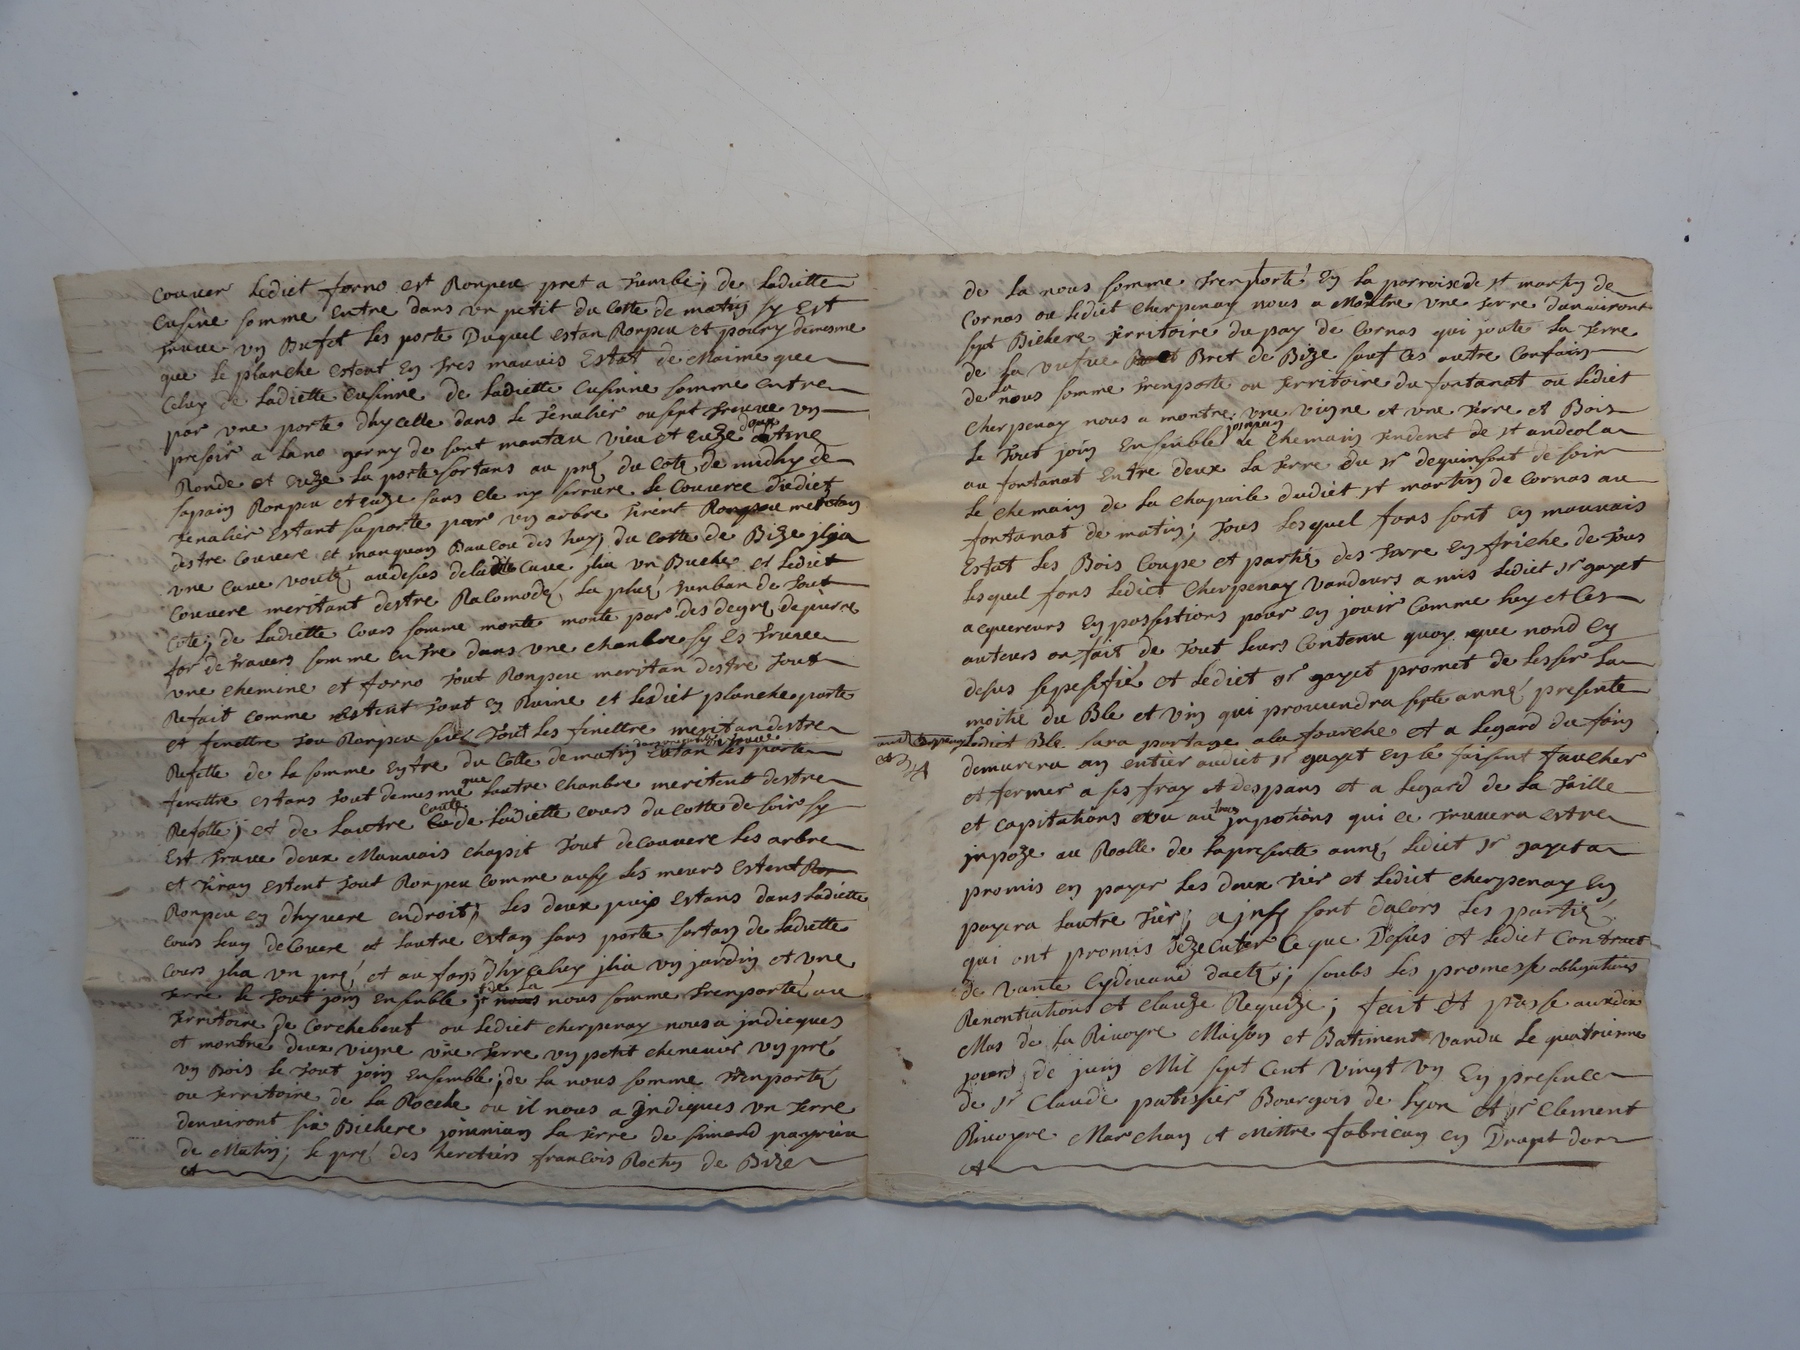 couver Lediet forno est Ronpeu pret a tumbé; de Ladiette
Cusine somme entre dans un petit du Cotte de matin sy Est
truve un Bufet Les porte Duquel estan Ronpeu et poury demesme
que Le planche estent En tres mauvais Estat de Maime que
Celuy de Ladiette Cusinne de Ladiette Cusinne somme entre
par une porte dhycelle dans Le tenalier ou sest treuve un
presoir a Lano garny de sont mantau vieu et euze
Ronde et euze La porte sortans au pré du Coté de midhy de
sapain Ronpeu et euze sans Cle ny serrure Le Couverce dudiet
tenalier Estant suporte par un arbre tirent meritan
destre Couvere et manquan Baucou des huy du Cotte de Bize jlia
une Cave vouté audesus deladite Cave jlia un Bucher et Lediet
Couvere meritant destre Racomodé La plus tunban de tout
Coté; de Ladiette Cours somme monte monte par des degré de pierre
for detravers somme entre dans une chanbre sy Es truvee
une chemine et forno tout Ronpeu meritan destre tout
Refait comme estent tout En Ruine et Lesdiet planche porte
et fenettre tou Ronpeu tout Les finettre meritan destre
Refette de La somme Entre du Cotte de matin Les porte
fenettre estans tout demesme que Lautre chanbre meritent destre
Refette; et de Lautre Coute de Ladiette Cours du Cotte de soir sy
Est truve deux Mauvais chapit tout decouvere Les arbre
et tiran estent tout Ronpeu Comme ausy Les meurs estent
Ronpeu en dhyvere endroit; Les deux puix estans dans Ladiette
Cours Leun decouere et Lautre estan sans porte sortan de Ladiette
Cours jlia un pré et au fons dhycelluy jlia un jardin et une
terre Le tout join Ensenble; de La nous somme trenporté au
territoire de Corchebeut ou Lediet cherpenay nous a jndicques
et montre deux vigne une terre un petit chenevier un pré
un Bois Le tout join Ensemble; de La nous somme trenporté
ou territoire de La Roche ou il nous a jndiques un terre
denviront six Bichere joinnian La terre de simond payrieu
de Matin; Le pré des heretiers francois Rochy de Bize
et
de La nous somme trenporté En La parroise de st martin de
Cornas ou Lediet cherpenay nous a Montre une terre danviront
sept Bichere territoire du pay de Cornas qui joute La terre
de La vufue Bret de Bize sauf Ces autre Confain
de La nous somme trenporte ou territoire du fontanat ou Lediet
cherpenay nous a montre une vigne et une terre et Bois
Le tout join Ensenble joinian Le chemain tendent de st andeol a
au fontanat Entre deux La terre du sr dequinsont de soir
Le chemain de La chapaile dudiet st martin de Cornas au
fontanat de matin; tous Lesquel fons sont en mauvais
Estat Les Bois Coupe et partié des terre En friche de tous
Lesquel fons Lediet cherpenay vandeurs a mis Lediet sr gayet
acquereurs En possestions pour en jouir Comme Luy et Ces
auteurs on fait de tout Leurs Contenu quoy que nond Ey
desus sepesifié et Lediet sr gayet promet de Lesser La
moitié du Ble et vin qui prouvindra sete anné presente
Lediet Ble sera partage a La fourche et a Legard du foin
demurera an entier audiet sr gayet En Le faisent faucher
et fermer a ses fray et despans et a Legard de La taille
et Capitations ou autres jnpotions qui Ce truvera estre
jnpoze au Roolle de La presente anné Lediet sr gayet a
promis en payer Les deux tier et Lediet cherpenay En
payera Lautre tier; ajnsy sont dacors Les partié
qui ont promis dezecuter Ce que Desus et Lediet Contract
de vante Cydevand daeté; soubs Les promesse obligations
Renontiations et Clauze Requize; fait et passe auxdix
Mas de La Rivoyre Maison et Batiment vandu Le quatrieme
jours de juin Mil sept Cent vingt un En presence
de sr Claude patissier Bourgois de Lyon et sr Clement
Rivoyre Marchan et Mettre fabrican en Drapt dor
et